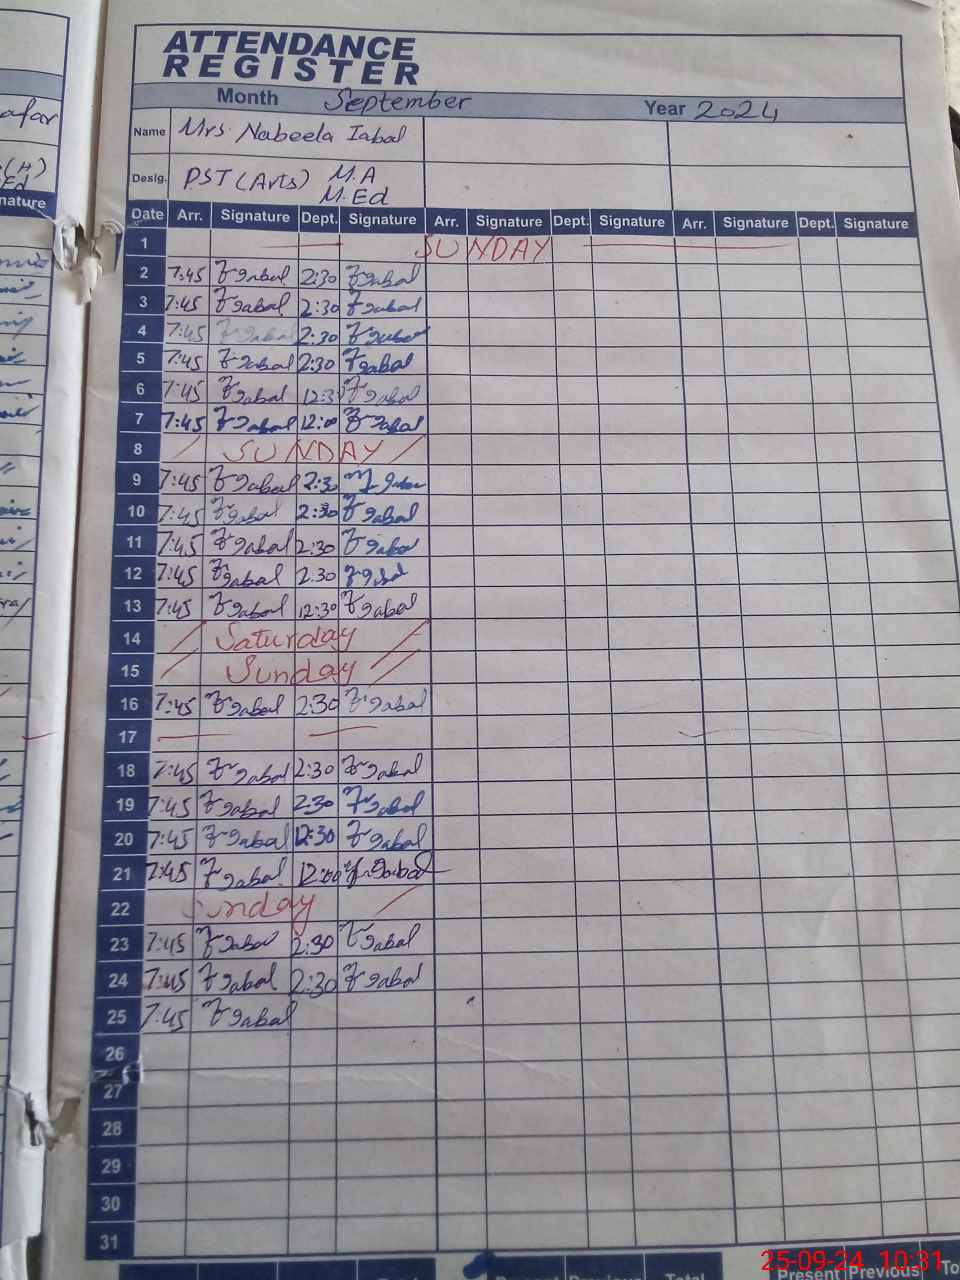 afar
(H)
Ed
nature
ATTENDANCE
REGISTER
Month September Year 2024
Name Mrs. Nabeela Iqbal
Desig. PST (Arts) M.A
M.Ed
Date Arr. Signature Dept. Signature Arr. Signature Dept. Signature Arr. Signature Dept. Signature
1 SUNDAY
2 7:45 Iqbal 2:30 Iqbal
3 7:45 Iqbal 2:30 Iqbal
4 7:45 Iqbal 2:30 Iqbal
5 7:45 Iqbal 2:30 Iqbal
6 7:45 Iqbal 12:30 Iqbal
7 7:45 Iqbal 12:00 Iqbal
8 SUNDAY
9 7:45 Iqbal 2:30 Iqbal
10 7:45 Iqbal 2:30 Iqbal
11 7:45 Iqbal 2:30 Iqbal
12 7:45 Iqbal 2:30 Iqbal
13 7:45 Iqbal 12:30 Iqbal
14 Saturday
15 Sunday
16 7:45 Iqbal 2:30 Iqbal
17
18 7:45 Iqbal 2:30 Iqbal
19 7:45 Iqbal 2:30 Iqbal
20 7:45 Iqbal 12:30 Iqbal
21 7:45 Iqbal 12:00 Iqbal
22 Sunday
23 7:45 Iqbal 2:30 Iqbal
24 7:45 Iqbal 2:30 Iqbal
25 7:45 Iqbal
26
27
28
29
30
31
Present Previous Total Present Previous To
25-09-24 10:31